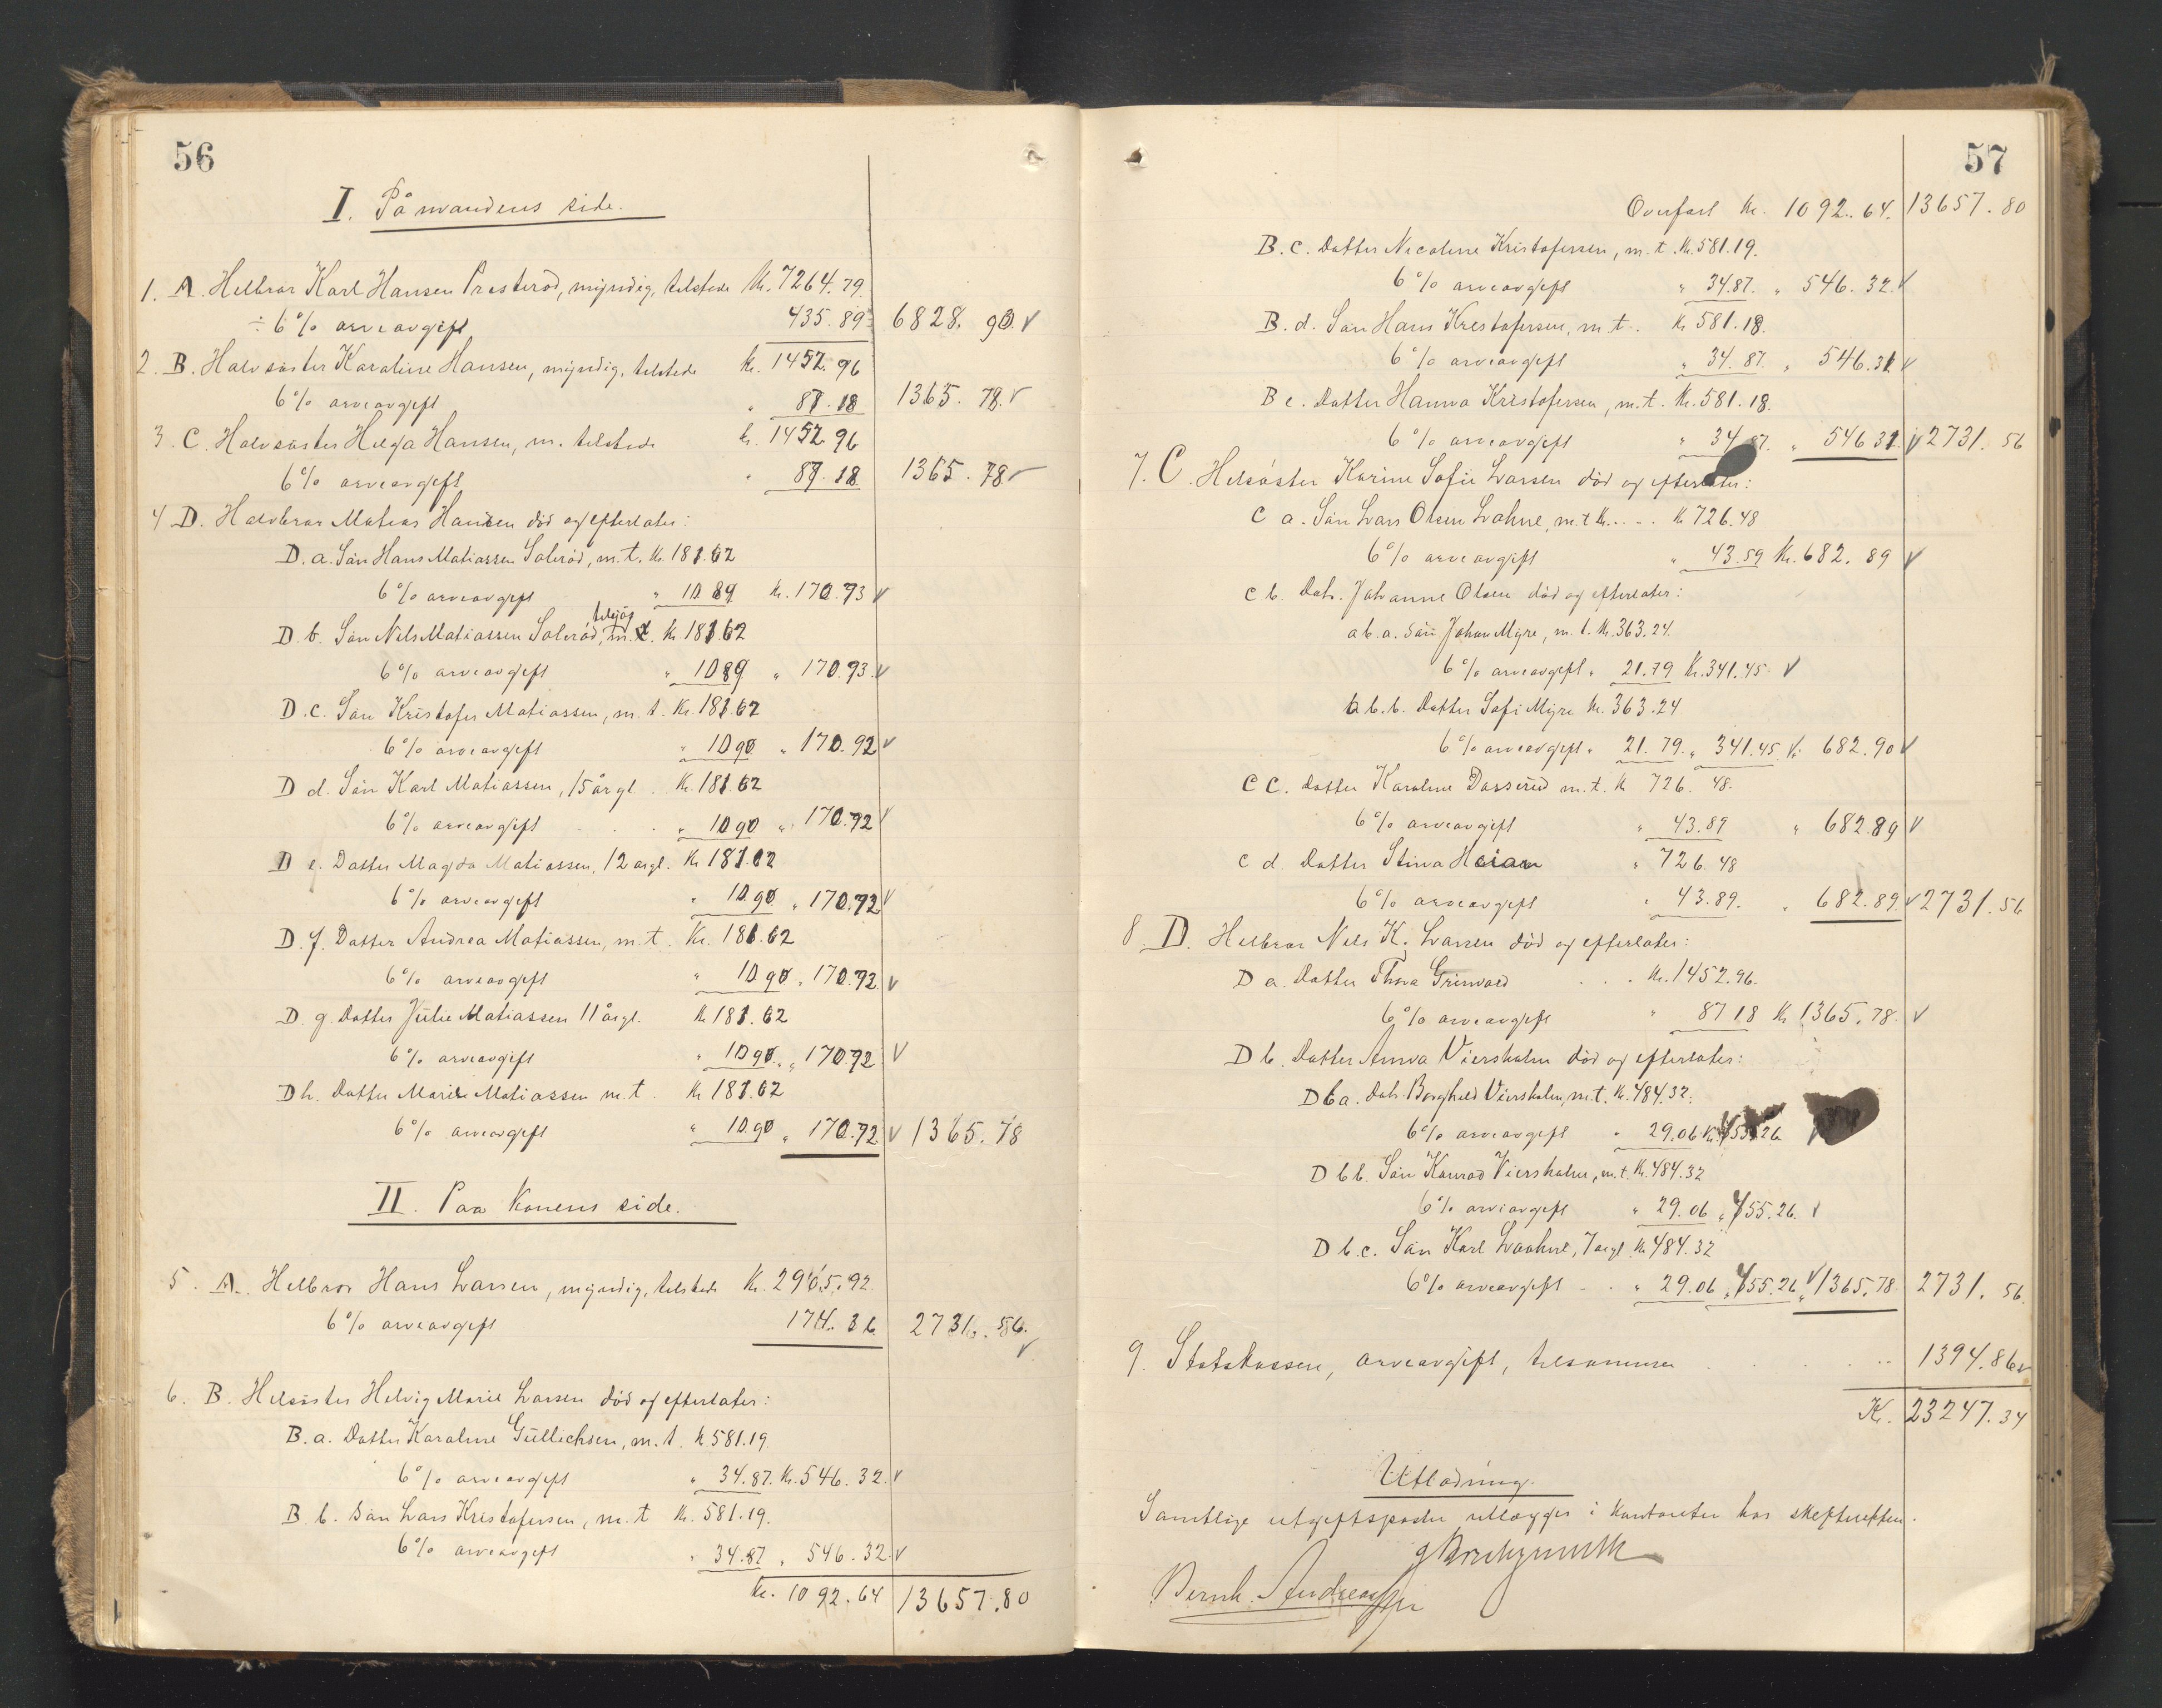 56
I. På mandens side.
1. A. Helbror Karl Hansen Presterød, myndig, tilstede Kr. 7264.79.
÷ 6% arveavgift 435.89 6828.90. V
2. B. Halvsøster Karoline Hansen, myndig, tilstede kr. 1452.96
6% arveavgift " 87.18 1365.78. V
3. C. Halvsøster Helga Hansen, m. tilstede kr. 1452.96
6% arveavgift " 87.18 1365.78 V
4 D. Halvbror Matias Hansen död og efterlater:
D. a. Sön Hans Matiassen Solerød, m. t. Kr. 181.62
6% arveavgift " 10 89 Kr. 170.73 V
D. b. Sön Nels Matiassen Solerød, m. t. kr. 181.62
6% arveavgift " 10 89 " 170.73. V
D. c. Sön Kristofer Matiassen, m. t. Kr. 181 62
6% arveavgift " 10 90 " 170.72 V
D d. Sön Karl Matiassen, 15 år gl. Kr. 181.62
6% arveavgift . . . " 10 90 " 170.72 V
D e. Datter Magda Matiassen, 12 årgl. Kr 181.62
6% arveavgift " 10.90 " 170.72 V
D. f. Datter Andrea Matiassen, m. t. Kr. 181.62
6% arveavgift " 10 90 " 170.72. V
D. g. Datter Julie Matiassen 11 årgl. Kr 181.62
6% arveavgift " 10 90 " 170 72 V
D h. Datter Marie Matiassen m. t. Kr 181.62
6% arveavgift " 10 90 " 170.72 V 1365.78
II. Paa Konens side.
5. A. Helbror Hans Larsen, myndig, tilstede Kr. 2905.92.
6% arveavgift 174.36 2731.56. V
6. B. Helsöster Helvig Marie Larsen död og efterlater:
B. a. Datter Karoline Gullichsen, m. t. kr 581.19.
6% arveavgift " 34.87. Kr. 546.32. V
B. b. Sön Lars Kristofersen, m. t Kr. 581.19.
6% arveavgift " 34.87 " 546.32. V
Kr. 1092.64 13657.80
57
Overført Kr. 1092.64. 13657.80
B. c. Datter Nicoline Kristofersen, m. t. Kr. 581.19.
6% arveavgift " 34.87. " 546.32. V
B. d. Sön Hans Kristofersen, m. t. Kr 581.18.
6% arveavgift " 34.87. " 546.31 V
B e. Datter Hanna Kristofersen, m. t. Kr. 581.18.
6% arveavgift " 34 87. " 546 31. V 2731.56
7. C. Helsöster Karine Sofie Larsen död og efterlater:
C a. Sön Lars Olsen Løhne, m. t. kr.... kr 726.48
6% arveavgift " 43.59 Kr. 682.89 V
C b. Datr. Johanne Olsen död og efterlater:
a b. a. Sön Johan Myre, m. t. Kr. 363.24.
6% arveavgift " 21.79 Kr. 341.45 V
b b. b. Datter Sofi Myre Kr. 363.24
6% arveavgift " 21.79. " 341.45 Kr. 682.90 V
C C. Datter Karoline m. t. Kr 726.48.
6% arveavgift " 43.89 " 682.89 V
C d. Datter Stina Heian " 726.48
6% arveavgift " 43.89. " 682.89. V 2731.56
8. D. Helbror Nels K. Larsen död og efterlater:
D a. Datter Thora . . . Kr. 1452.96.
6% arveavgift " 87 18 Kr 1365.78. V
D b. Datter Anna Viersholm död og efterlater:
D b a. Datr. Borghild Viersholm, m. t. Kr. 484.32.
6% arveavgift " 29.06 Kr. 455.26 V
D b b. Sön Konrad Viersholm, m. t. Kr. 484.32
6% arveavgift " 29.06 " 455.26. V
D b. c. Sön Karl Løvhne, 7 årgl. Kr 484.32
6% arveavgift . . " 29.06 " 455.26 V " 1365.78. 2731.56.
9. Statskassen, arveavgift, tilsammen . . . . . . 1394.86 V
Kr. 23247.34
Utlodning.
Samtlige utgiftsposter utlægges i kontanter hos skifteretten.
Bernh. Andreassen